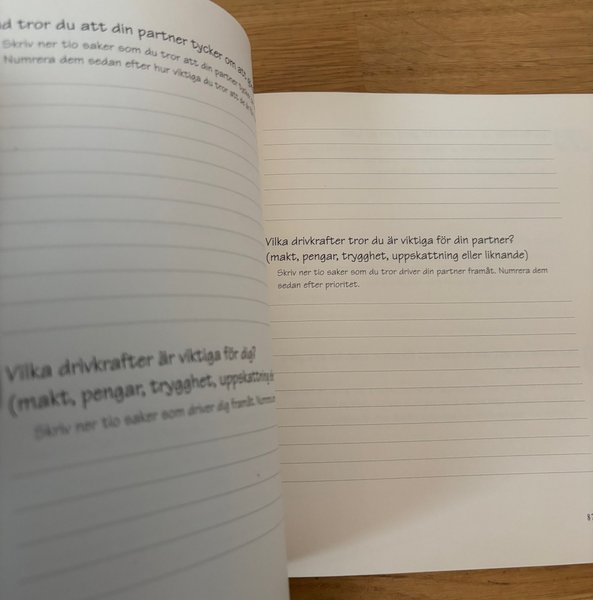 d tror du att din partner tycker om att
Skriv ner tio saker som du tror att din partner
Numrera dem sedan efter hur viktiga du tror att de är
Vilka drivkrafter är viktiga för dig?
(makt, pengar, trygghet, uppskattning
Skriv ner tio saker som driver dig framåt.
Vilka drivkrafter tror du är viktiga för din partner?
(makt, pengar, trygghet, uppskattning eller liknande)
Skriv ner tio saker som du tror driver din partner framåt. Numrera dem
sedan efter prioritet.